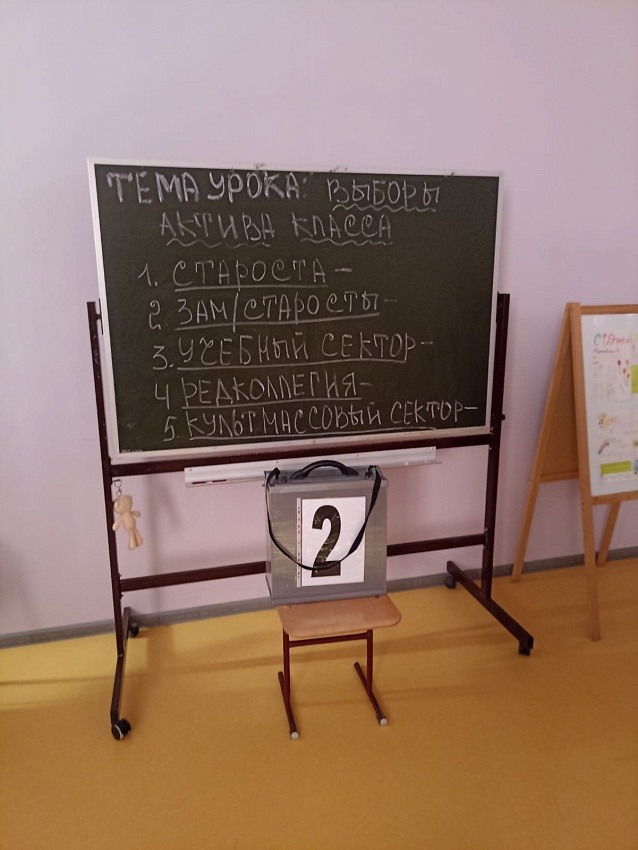 ТЕМА УРОКА: ВЫБОРЫ
АКТИВА КЛАССА
1. СТАРОСТА –
2. ЗАМ/СТАРОСТЫ –
3. УЧЕБНЫЙ СЕКТОР –
4 РЕДКОЛЛЕГИЯ –
5. КУЛЬТМАССОВЫЙ СЕКТОР –
2